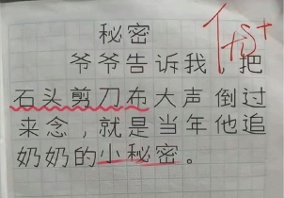 秘密
爷爷告诉我，把
石头剪刀布大声倒过
来念，就是当年他追
奶奶的小秘密。